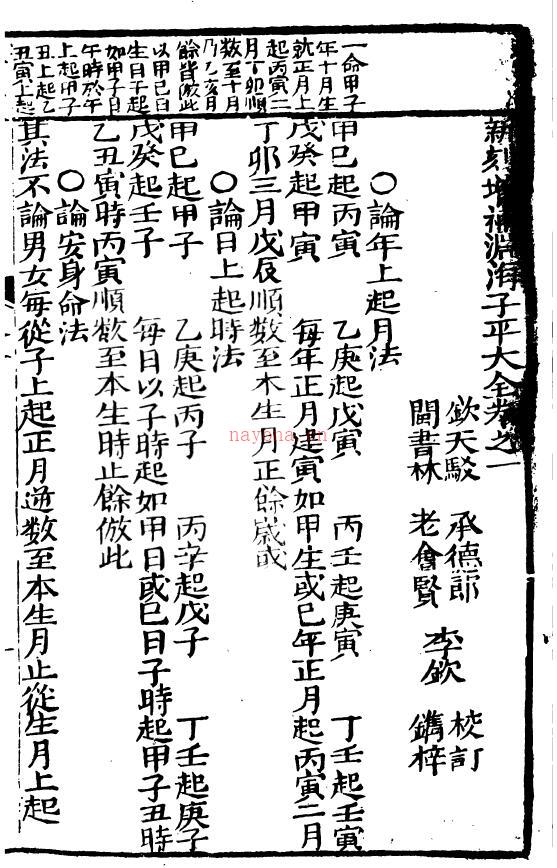 新刻增補淵海子平大全卷之一
欽天駁 承德郎 李欽 校訂
閩書林 老會賢 鐫梓
○論年上起月法
甲巳起丙寅 乙庚起戊寅 丙壬起庚寅 丁壬起壬寅
戊癸起甲寅 每年正月建寅如甲生或巳年正月起丙寅二月
丁卯三月戊辰順数至本生月正餘歲或
○論日上起時法
甲巳起甲子 乙庚起丙子 丙辛起戊子 丁壬起庚子
戊癸起壬子 每日以子時起如甲日或巳日子時起甲子丑時
乙丑寅時丙寅順数至本生時止餘倣此
○論安身命法
其法不論男女每從子上起正月逆数至本生月止從生月上起
一命甲子
年十月生
就正月上
起丙寅二
月丁卯順
数至十月
乃乙亥月
餘皆倣此
以甲巳日
生日子起
如甲子日
午時於午
上起甲子
丑上起乙
丑寅上起